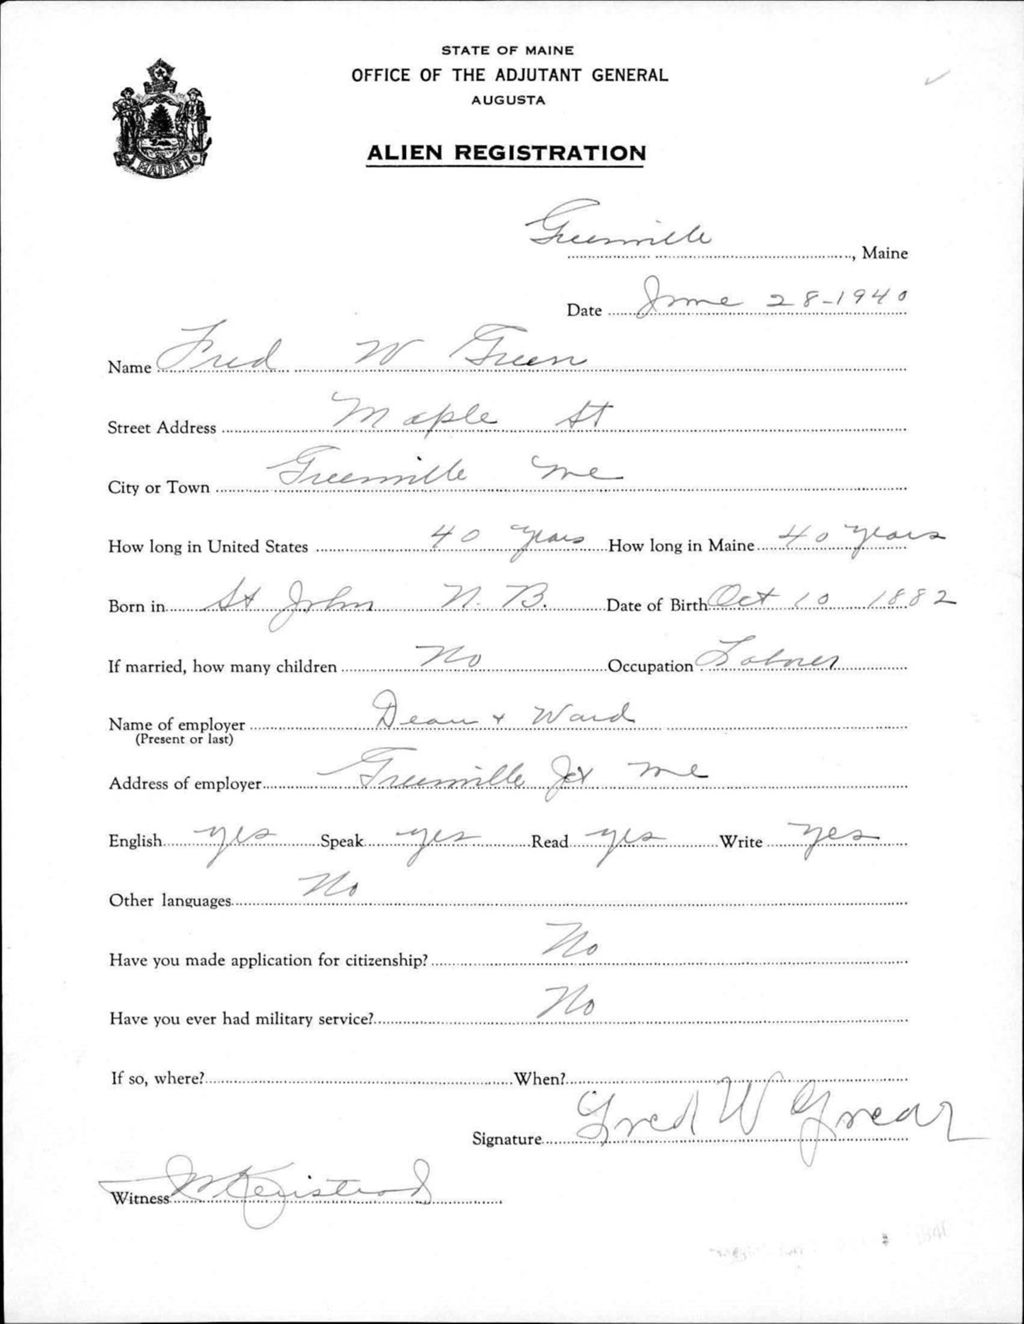 STATE OF MAINE
OFFICE OF THE ADJUTANT GENERAL
AUGUSTA
MAINE
ALIEN REGISTRATION
Greenville, Maine
Date June 28-1940
Name Fred W Green
Street Address Maple St
City or Town Greenville Me
How long in United States 40 years How long in Maine 40 years
Born in St John N. B. Date of Birth Oct 10 1882
If married, how many children No Occupation Laborer
Name of employer Dean + Ward
(Present or last)
Address of employer Greenville Jct Me
English yes Speak yes Read yes Write yes
Other languages No
Have you made application for citizenship? No
Have you ever had military service? No
If so, where? When?
Signature Fred W
Witness